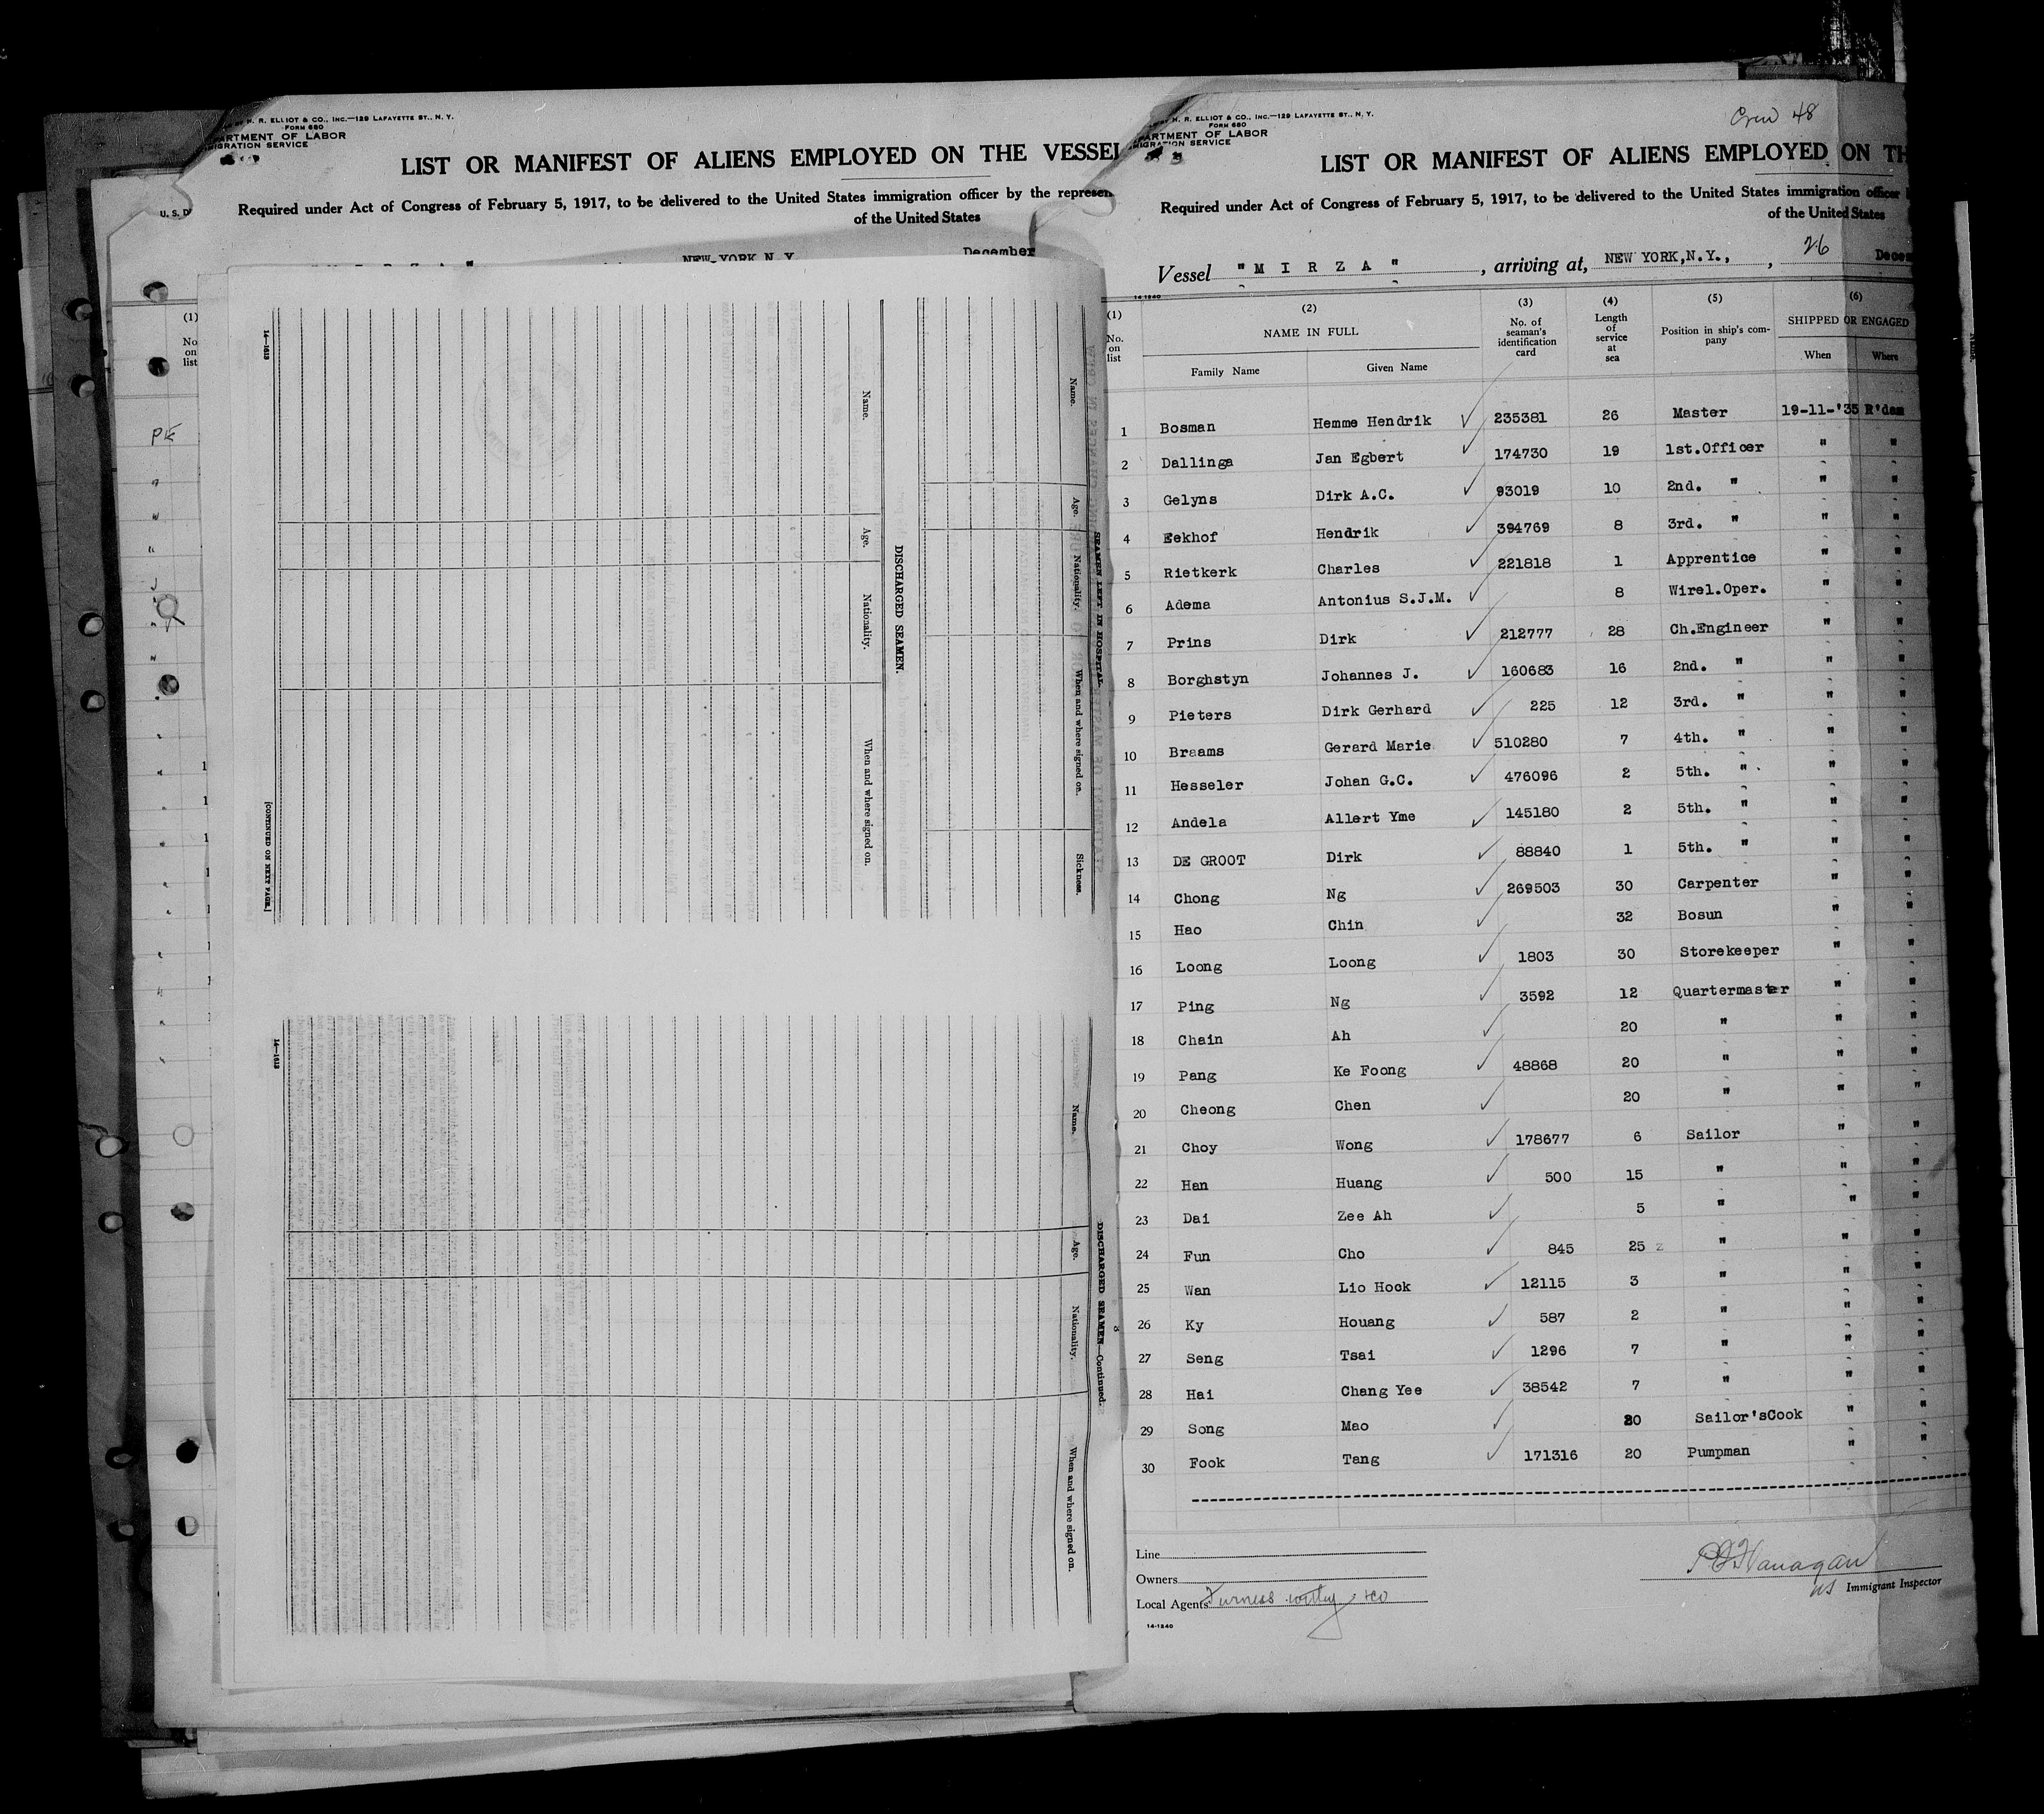 R. ELLIOT & CO., INC.—129 LAFAYETTE ST., N. Y.
FORM 680
ARTMENT OF LABOR
IGRATION SERVICE
LIST OR MANIFEST OF ALIENS EMPLOYED ON THE VESSEL
Required under Act of Congress of February 5, 1917, to be delivered to the United States immigration officer by the represen
of the United States
U. S. D
NEW YORK N.Y. December
(1)
No
on
list
PK
14—1613
Name. Age. Nationality. When and where signed on.
DISCHARGED SEAMEN.
Name. Age. Nationality. When and where signed on. Sickness.
SEAMEN LEFT IN HOSPITAL
[CONTINUED ON NEXT PAGE.]
14—1613
Name. Age. Nationality. When and where signed on.
DISCHARGED SEAMEN—Continued.
3
R. ELLIOT & CO., INC.—129 LAFAYETTE ST., N. Y.
FORM 680
ARTMENT OF LABOR
IGRATION SERVICE
Crew 48
LIST OR MANIFEST OF ALIENS EMPLOYED ON TH
Required under Act of Congress of February 5, 1917, to be delivered to the United States immigration officer
of the United States
Vessel "M I R Z A", arriving at, NEW YORK,N.Y., , 26 Decem
14-1240
(1) (2) (3) (4) (5) (6)
No. on list NAME IN FULL No. of seaman's identification card Length of service at sea Position in ship's company SHIPPED OR ENGAGED
Family Name Given Name When Where
1 Bosman Hemme Hendrik ✓ 235381 26 Master 19-11-'35 R'dam
2 Dallinga Jan Egbert ✓ 174730 19 1st.Officer " "
3 Gelyns Dirk A.C. ✓ 93019 10 2nd. " " "
4 Eekhof Hendrik ✓ 394769 8 3rd. " " "
5 Rietkerk Charles ✓ 221818 1 Apprentice " "
6 Adema Antonius S.J.M. ✓ 8 Wirel.Oper. " "
7 Prins Dirk ✓ 212777 28 Ch.Engineer " "
8 Borghstyn Johannes J. ✓ 160683 16 2nd. " " "
9 Pieters Dirk Gerhard ✓ 225 12 3rd. " " "
10 Braams Gerard Marie ✓ 510280 7 4th. " " "
11 Hesseler Johan G.C. ✓ 476096 2 5th. " " "
12 Andela Allert Yme ✓ 145180 2 5th. " " "
13 DE GROOT Dirk ✓ 88840 1 5th. " " "
14 Chong Ng ✓ 269503 30 Carpenter " "
15 Hao Chin ✓ 32 Bosun " "
16 Loong Loong ✓ 1803 30 Storekeeper " "
17 Ping Ng ✓ 3592 12 Quartermaster " "
18 Chain Ah ✓ 20 " " "
19 Pang Ke Foong ✓ 48868 20 " " "
20 Cheong Chen ✓ 20 " " "
21 Choy Wong ✓ 178677 6 Sailor " "
22 Han Huang ✓ 500 15 " " "
23 Dai Zee Ah ✓ 5 " " "
24 Fun Cho ✓ 845 25 " " "
25 Wan Lio Hock ✓ 12115 3 " " "
26 Ky Houang ✓ 587 2 " " "
27 Seng Tsai ✓ 1296 7 " " "
28 Hai Chang Yee ✓ 38542 7 " " "
29 Song Mao ✓ 20 Sailor'sCook " "
30 Fook Tang ✓ 171316 20 Pumpman " "
Line
Owners
Local Agents Furness Withy & Co
14-1240
Flanagan
US Immigrant Inspector